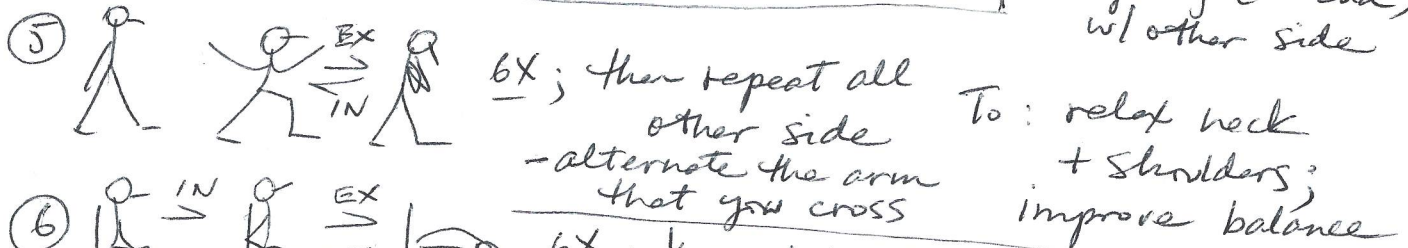 w/ other side
5
EX
IN
6X ; then repeat all
other side
- alternate the arm
that you cross
To : relax neck
+ shoulders;
improve balance
6
IN
EX
6X